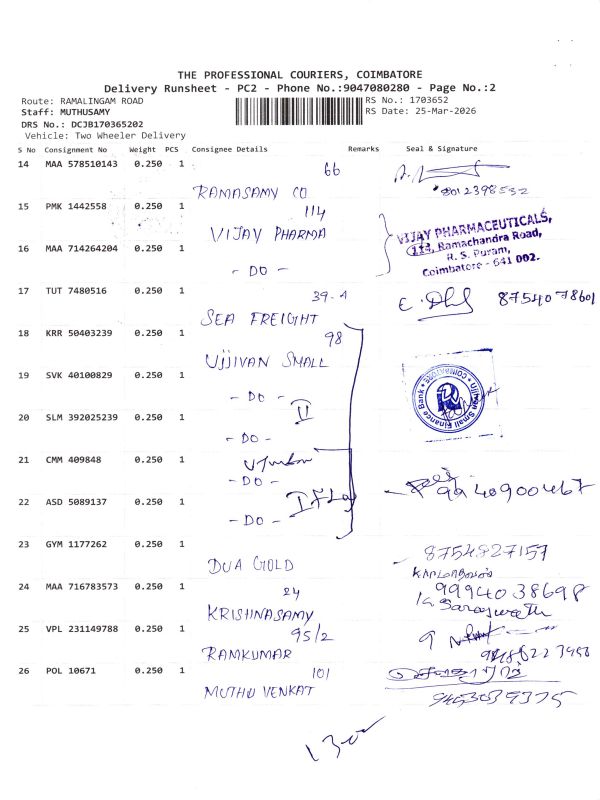 THE PROFESSIONAL COURIERS, COIMBATORE
Delivery Runsheet - PC2 - Phone No.:9047080280 - Page No.:2
Route: RAMALINGAM ROAD RS No.: 1703652
Staff: MUTHUSAMY RS Date: 25-Mar-2026
DRS No.: DCJB170365202
Vehicle: Two Wheeler Delivery
S No Consignment No Weight PCS Consignee Details Remarks Seal & Signature
14 MAA 578510143 0.250 1 66
RAMASAMY CO 8012398532
15 PMK 1442558 0.250 1 114
VIJAY PHARMA
VIJAY PHARMACEUTICALS,
114, Ramachandra Road,
R. S. Puram,
Coimbatore - 641 002.
16 MAA 714264204 0.250 1
- DO -
17 TUT 7480516 0.250 1 39-A 8754078601
SEA FREIGHT
18 KRR 50403239 0.250 1 98
UJJIVAN SMALL
Ujjivan Small Finance Bank
COIMBATORE
19 SVK 40100829 0.250 1
- DO -
II
20 SLM 392025239 0.250 1
- DO -
21 CMM 409848 0.250 1
- DO -
9940900467
22 ASD 5089137 0.250 1
- DO -
23 GYM 1177262 0.250 1 8754827157
DUA GOLD
24 MAA 716783573 0.250 1 24 9994038698
KRISHNASAMY K. Saraswathi
25 VPL 231149788 0.250 1 95/2
RAMKUMAR
26 POL 10671 0.250 1 101
MUTHU VENKAT